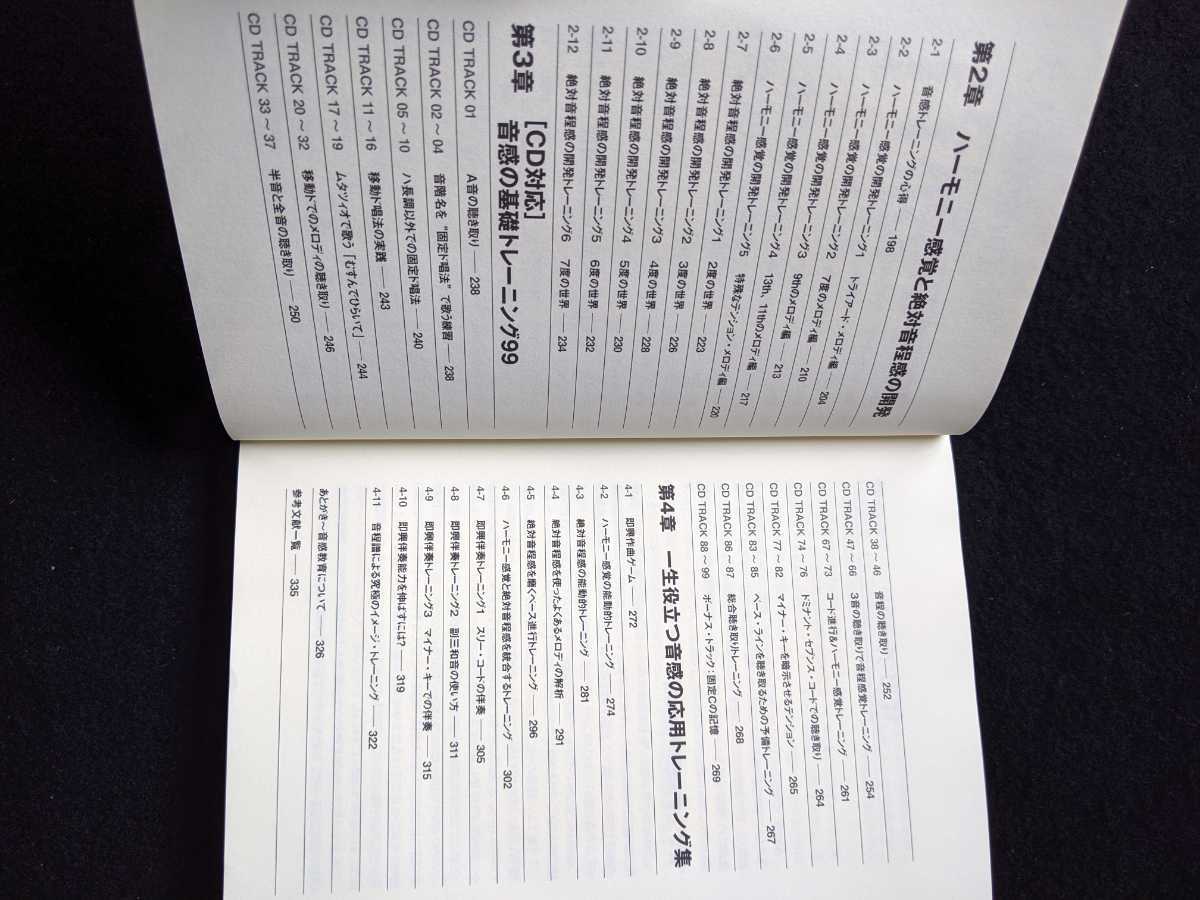 第2章 ハーモニー感覚と絶対音程感の開発
2-1 音感トレーニングの心得 —— 198
2-2 ハーモニー感覚の開発トレーニング1 トライアード・メロディ編 —— 204
2-3 ハーモニー感覚の開発トレーニング2 7度のメロディ編 —— 210
2-4 ハーモニー感覚の開発トレーニング3 9thのメロディ編 —— 213
2-5 ハーモニー感覚の開発トレーニング4 13th、11thのメロディ編 —— 217
2-6 ハーモニー感覚の開発トレーニング5 特殊なテンション・メロディ編 —— 220
2-7 絶対音程感の開発トレーニング1 2度の世界 —— 223
2-8 絶対音程感の開発トレーニング2 3度の世界 —— 226
2-9 絶対音程感の開発トレーニング3 4度の世界 —— 228
2-10 絶対音程感の開発トレーニング4 5度の世界 —— 230
2-11 絶対音程感の開発トレーニング5 6度の世界 —— 232
2-12 絶対音程感の開発トレーニング6 7度の世界 —— 234
第3章 [CD対応]
音感の基礎トレーニング99
CD TRACK 01 A音の聴き取り —— 238
CD TRACK 02 ～ 04 音階名を“固定ド唱法”で歌う練習 —— 238
CD TRACK 05 ～ 10 ハ長調以外での固定ド唱法 —— 240
CD TRACK 11 ～ 16 移動ド唱法の実践 —— 243
CD TRACK 17 ～ 19 ムタツィオで歌う「むすんでひらいて」 —— 244
CD TRACK 20 ～ 32 移動ドでのメロディの聴き取り —— 246
CD TRACK 33 ～ 37 半音と全音の聴き取り —— 250
CD TRACK 38 ～ 46 音程の聴き取り —— 252
CD TRACK 47 ～ 66 3音の聴き取りで音程感覚トレーニング —— 254
CD TRACK 67 ～ 73 コード進行&ハーモニー感覚トレーニング —— 261
CD TRACK 74 ～ 76 ドミナント・セブンス・コードでの聴き取り —— 264
CD TRACK 77 ～ 82 マイナー・キーを暗示させるテンション —— 265
CD TRACK 83 ～ 85 ベース・ラインを聴き取るための予備トレーニング —— 267
CD TRACK 86 ～ 87 総合聴き取りトレーニング —— 268
CD TRACK 88 ～ 99 ボーナス・トラック：固定Cの記憶 —— 269
第4章 一生役立つ音感の応用トレーニング集
4-1 即興作曲ゲーム —— 272
4-2 ハーモニー感覚の能動的トレーニング —— 274
4-3 絶対音程感の能動的トレーニング —— 281
4-4 絶対音程感を使ったよくあるメロディの解析 —— 291
4-5 絶対音程感を磨くベース進行トレーニング —— 296
4-6 ハーモニー感覚と絶対音程感を統合するトレーニング —— 302
4-7 即興伴奏トレーニング1 スリー・コードの伴奏 —— 305
4-8 即興伴奏トレーニング2 副三和音の使い方 —— 311
4-9 即興伴奏トレーニング3 マイナー・キーでの伴奏 —— 315
4-10 即興伴奏能力を伸ばすには？ —— 319
4-11 音程譜による究極のイメージ・トレーニング —— 322
あとがき～音感教育について —— 326
参考文献一覧 —— 335